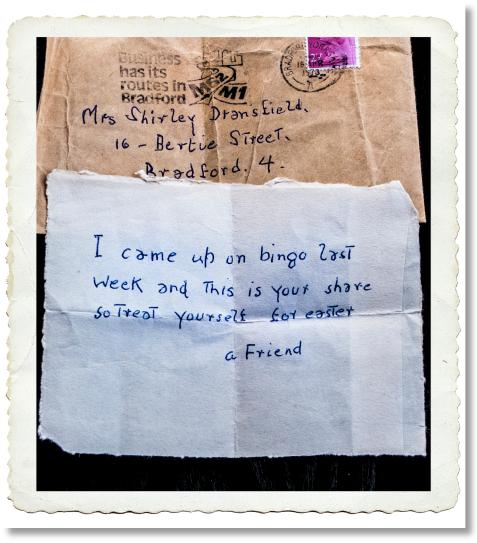 Business
has its
routes in
Bradford
M62
M1
BRADFORD
Mrs Shirley Dransfield,
16 - Bertie Street,
Bradford. 4.
I came up on bingo last
Week and This is your share
so Treat yourself for easter
a Friend